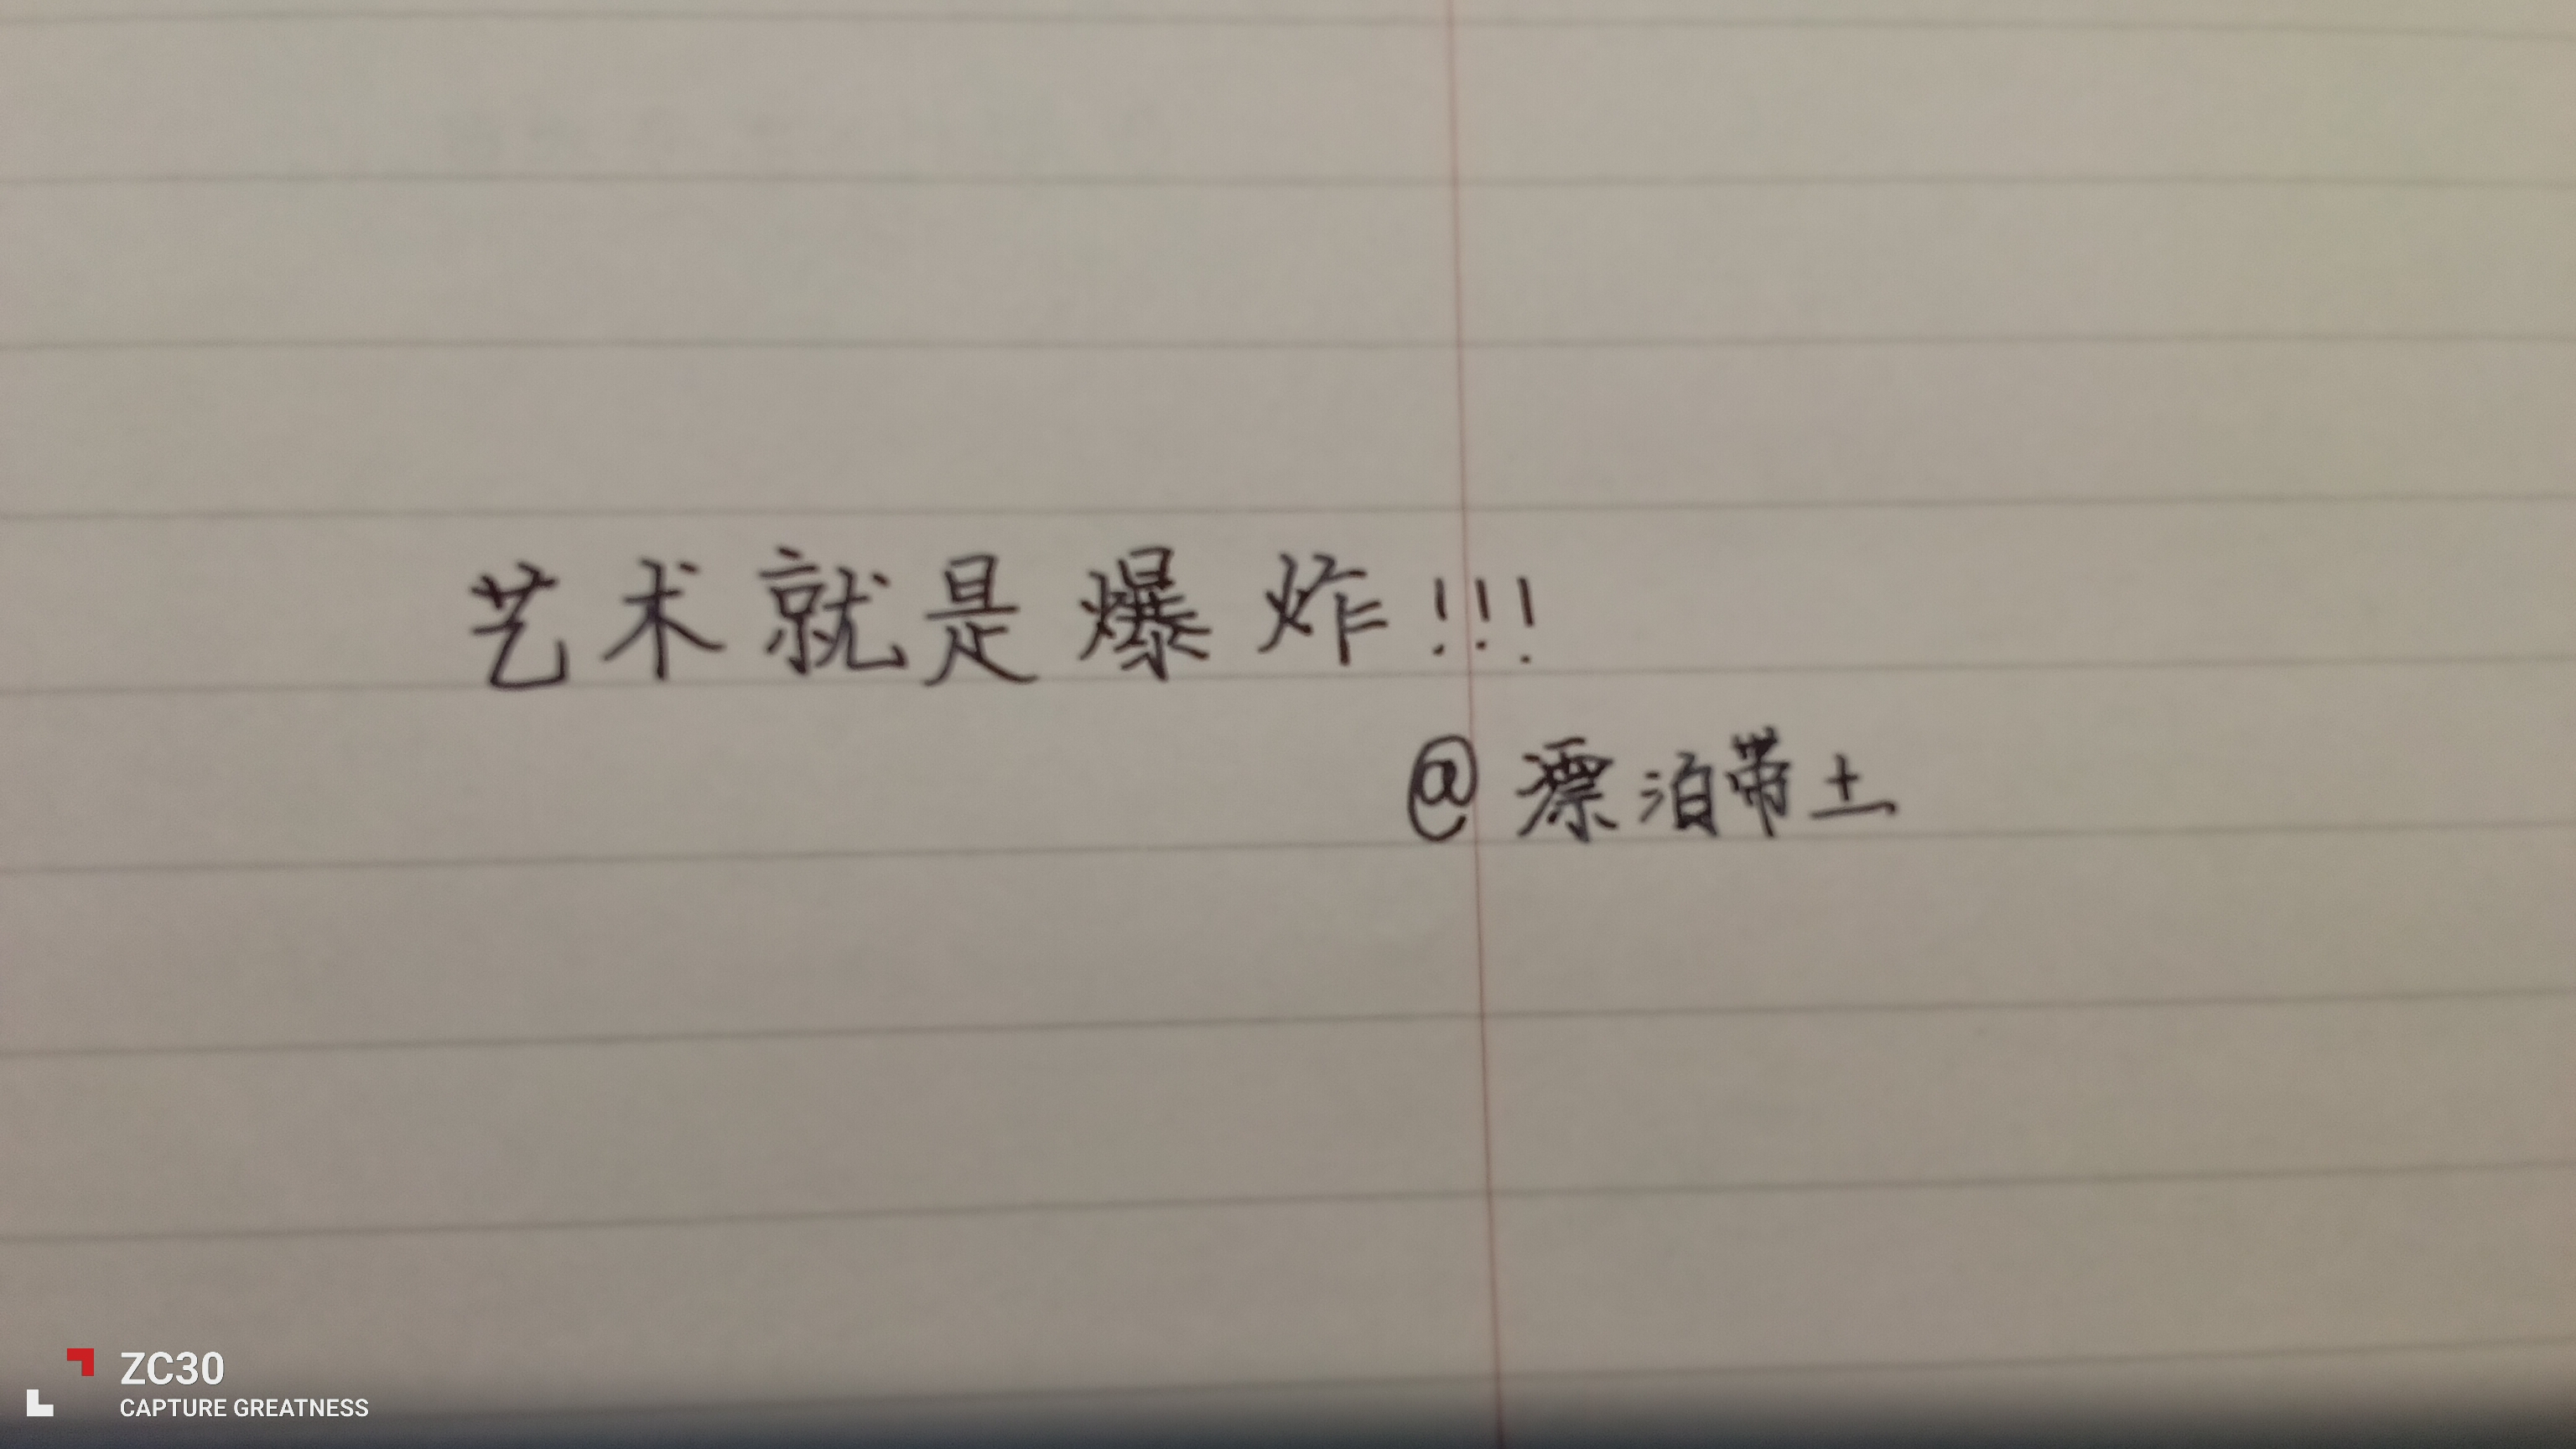 艺术就是爆炸!!!
@漂泊带土
ZC30
CAPTURE GREATNESS